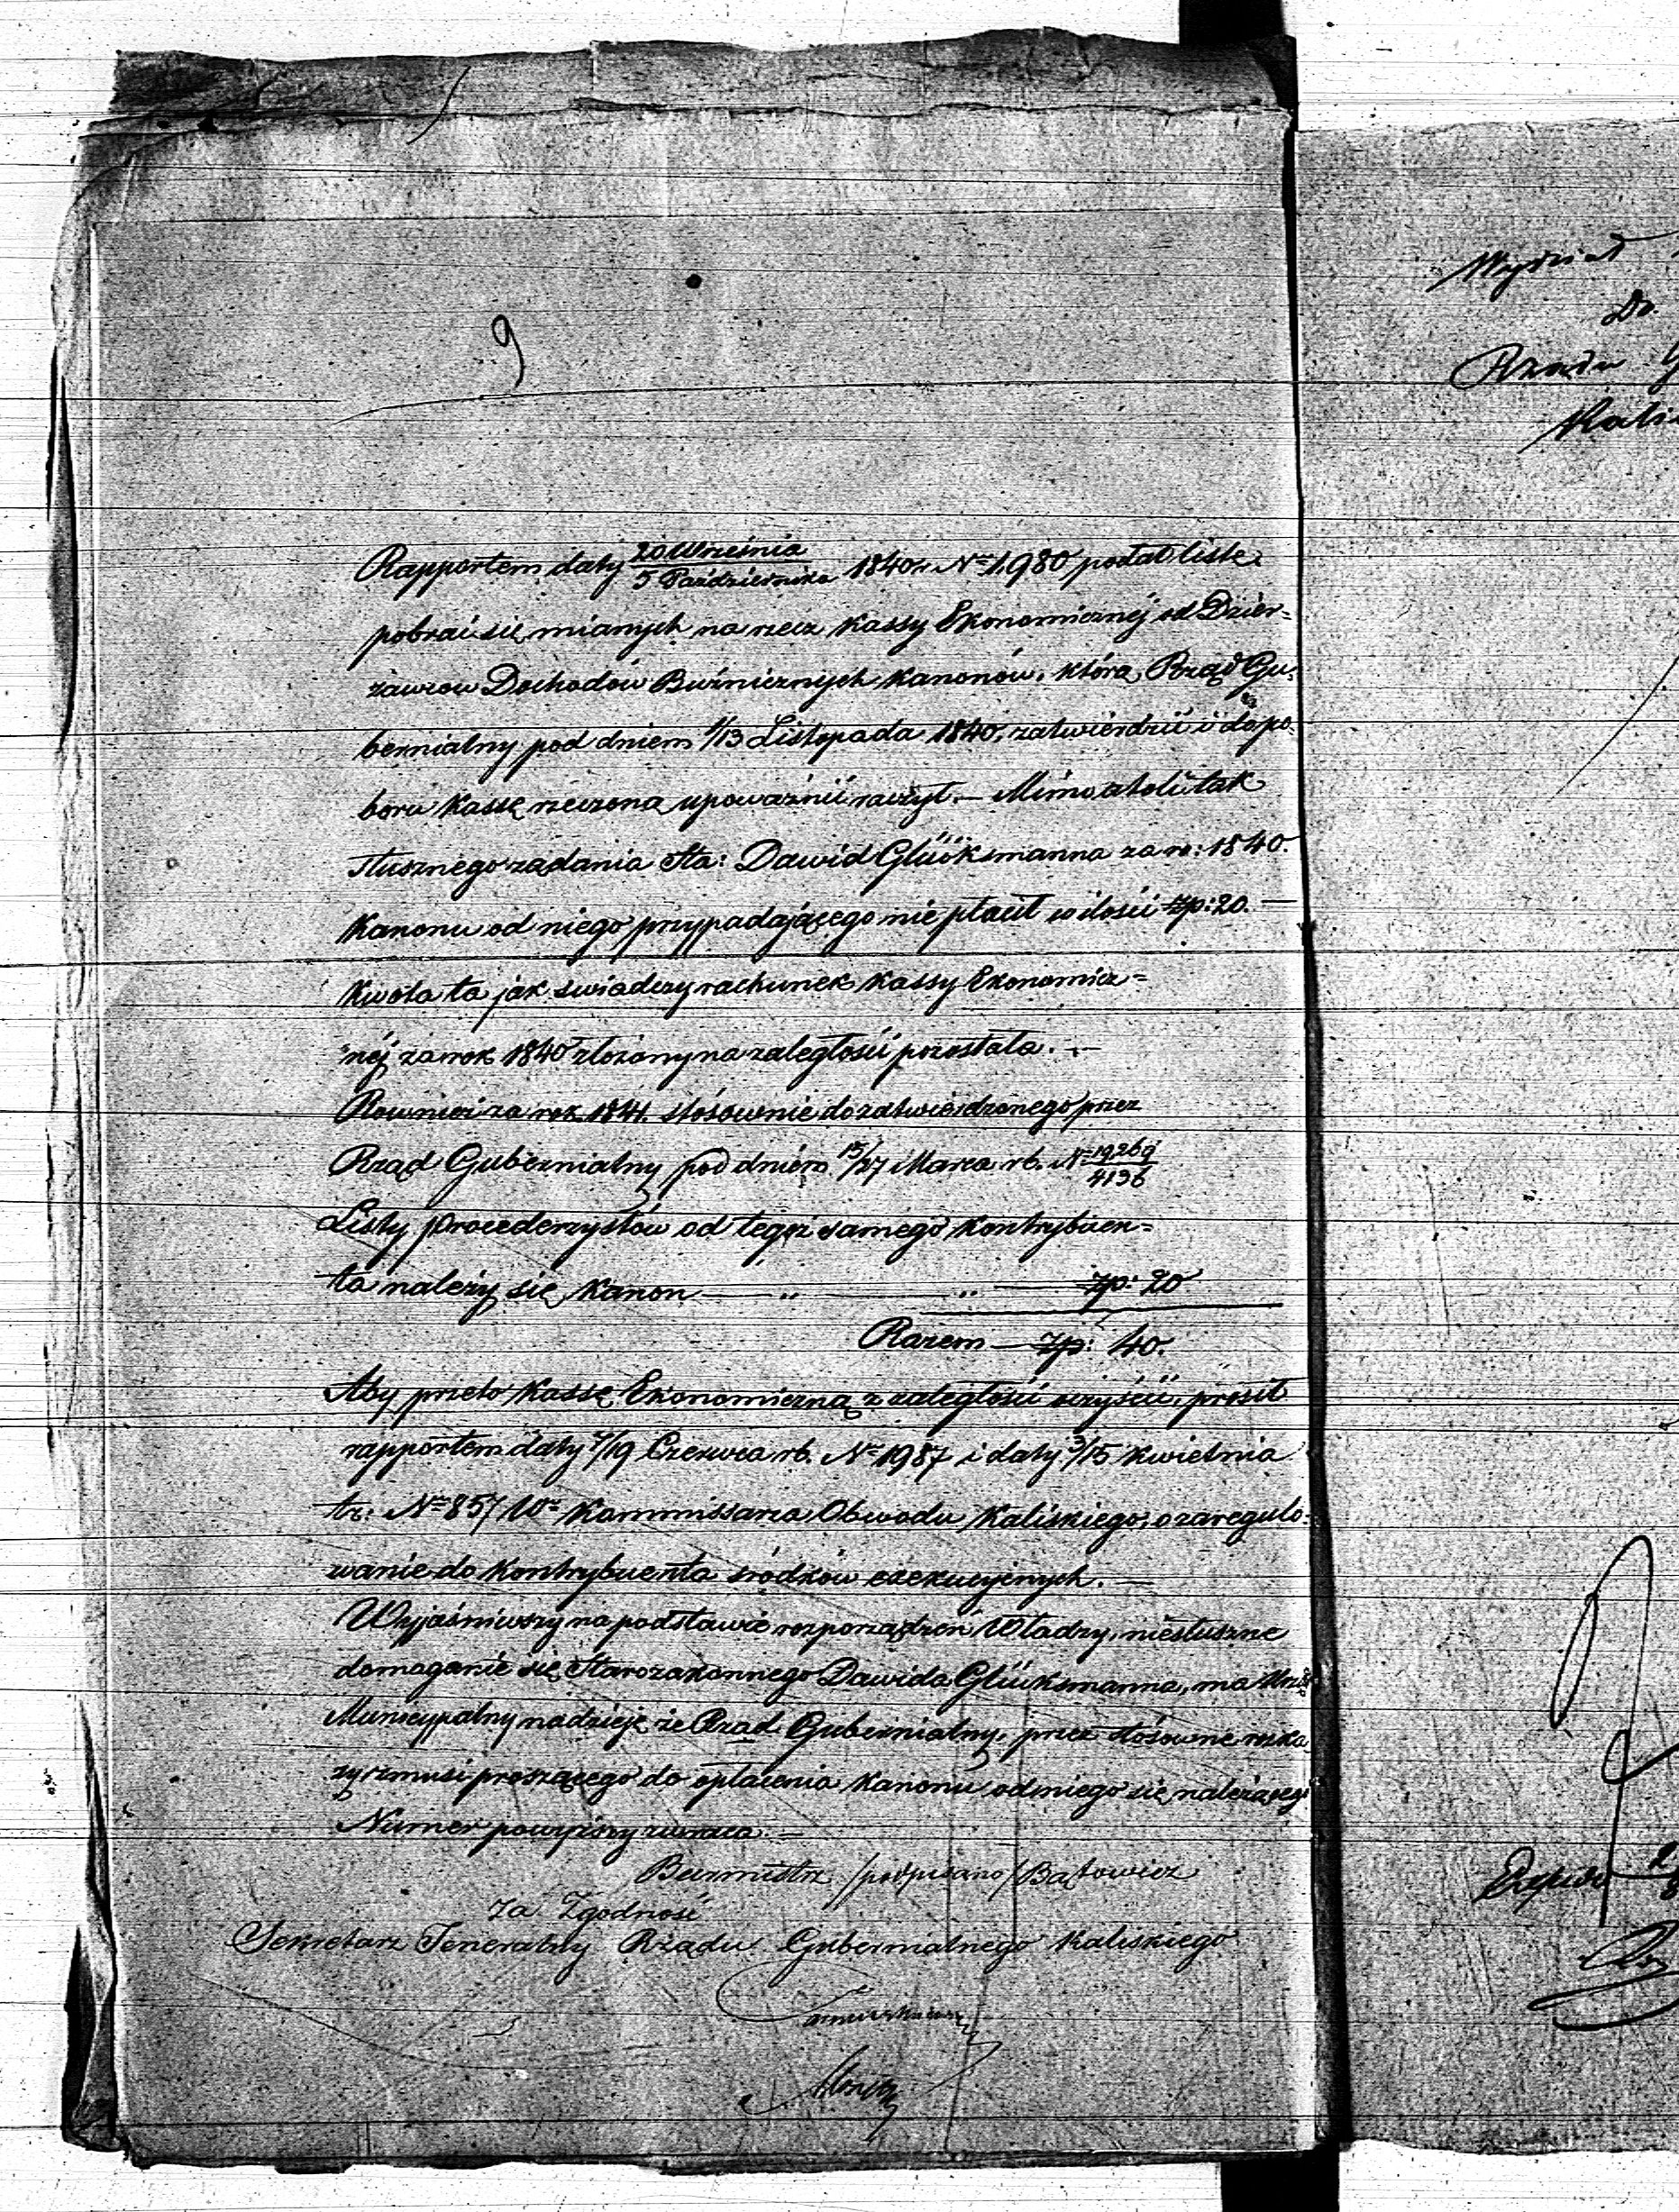 9
Rapportem daty 20 Września / 5 Października 1840 r. No 1.980 podał listę
pobrać się mianych na rzecz Kassy Ekonomicznéj od Dzier=
zawców Dochodów Bużnicznych Kanonów, którą Rząd Gu=
bernialny pod dniem 1/13 Listopada 1840. zatwierdzić i do po=
boru Kassę rzeczoną upoważnić raczył. — Mimo atoli tak
słusznego żądania Sta: Dawid Glücksmanna za ro: 1840.
Kanonu od niego przypadającego nie płacił w ilości zp: 20. —
Kwota ta jak świadczy rachunek Kassy Ekonomicz=
néj za rok 1840 złożony na zaległości pozostała. —
Rownież za rok 1841. stósownie do zatwierdzonego przez
Rząd Gubernialny pod dniem 15/27 Marca rb. No 19269/4136
Listy procederzystów od tegoż samego Kontrybuen=
ta należy się Kanon — „ — „ — zp: 20
Razem — zp: 40.
Aby przeto Kassę Ekonomiczną z zaległości oczyścić, prosił
rapportem daty 7/19 Czerwca rb. No 1987 i daty 3/15 Kwietnia
tr: No 857 Wo Kommissarza Obwodu Kaliskiego, o zaregulo=
wanie do Kontrybuenta śródków exekucyjnych. —
Wyjaśniwszy na podstawie rozporządzeń Władzy, niesłuszne
domaganie się Starozakonnego Dawida Glücksmanna, ma Urząd
Municypalny nadzieję że Rząd Gubernialny, przez stósowne rozka=
zy zmusi proszącego do opłacenia Kanonu od niego się należącego
Numer powyższy zwraca. —
Burmistrz /podpisano/ Bątowicz
Za Zgodność
Sekretarz Jeneralny Rządu Gubernialnego Kaliskiego
Wydział
Do
Rządu G
Kalis